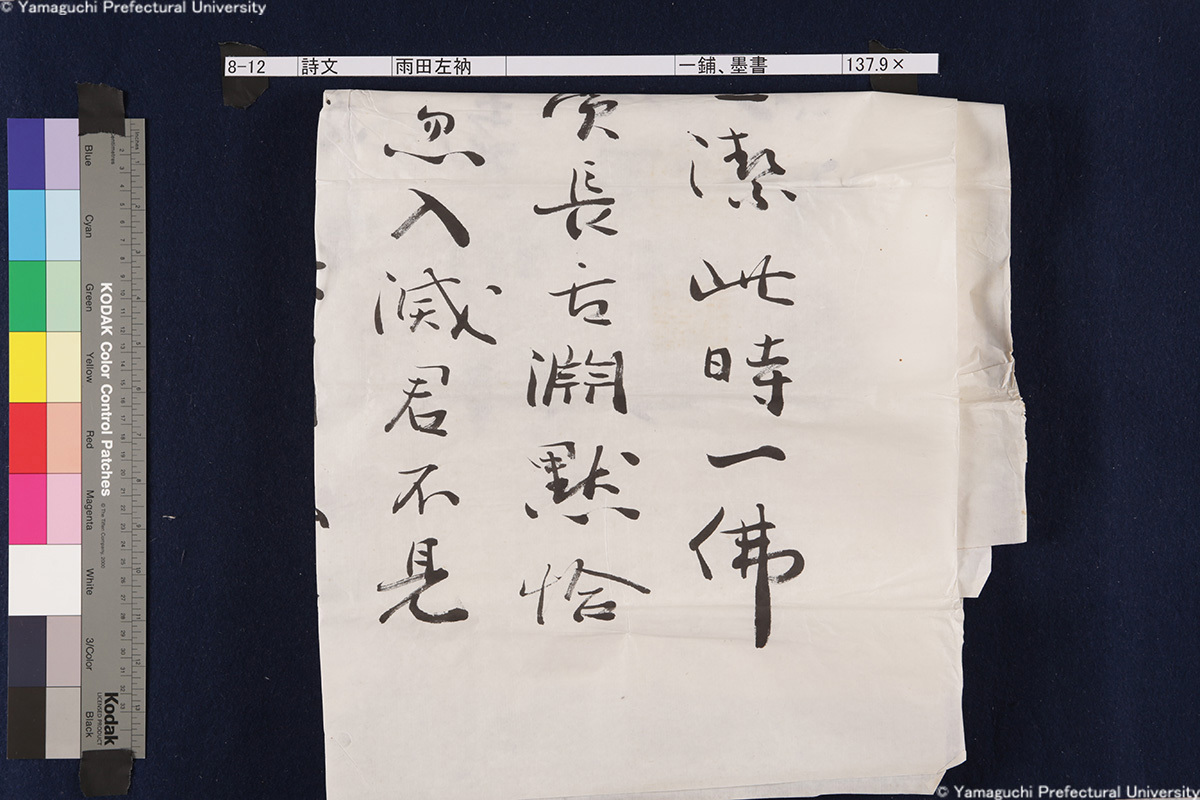 © Yamaguchi Prefectural University
8-12 詩文 雨田左衲 一鋪、墨書 137.9×
潔此時一佛
長古淵黙恰
忽入滅君不見
Blue
Cyan
Green
Yellow
Red
Magenta
White
3/Color
Black
KODAK Color Control Patches
© The Tiffen Company, 2000
Kodak
LICENSED PRODUCT
centimetres
© Yamaguchi Prefectural University